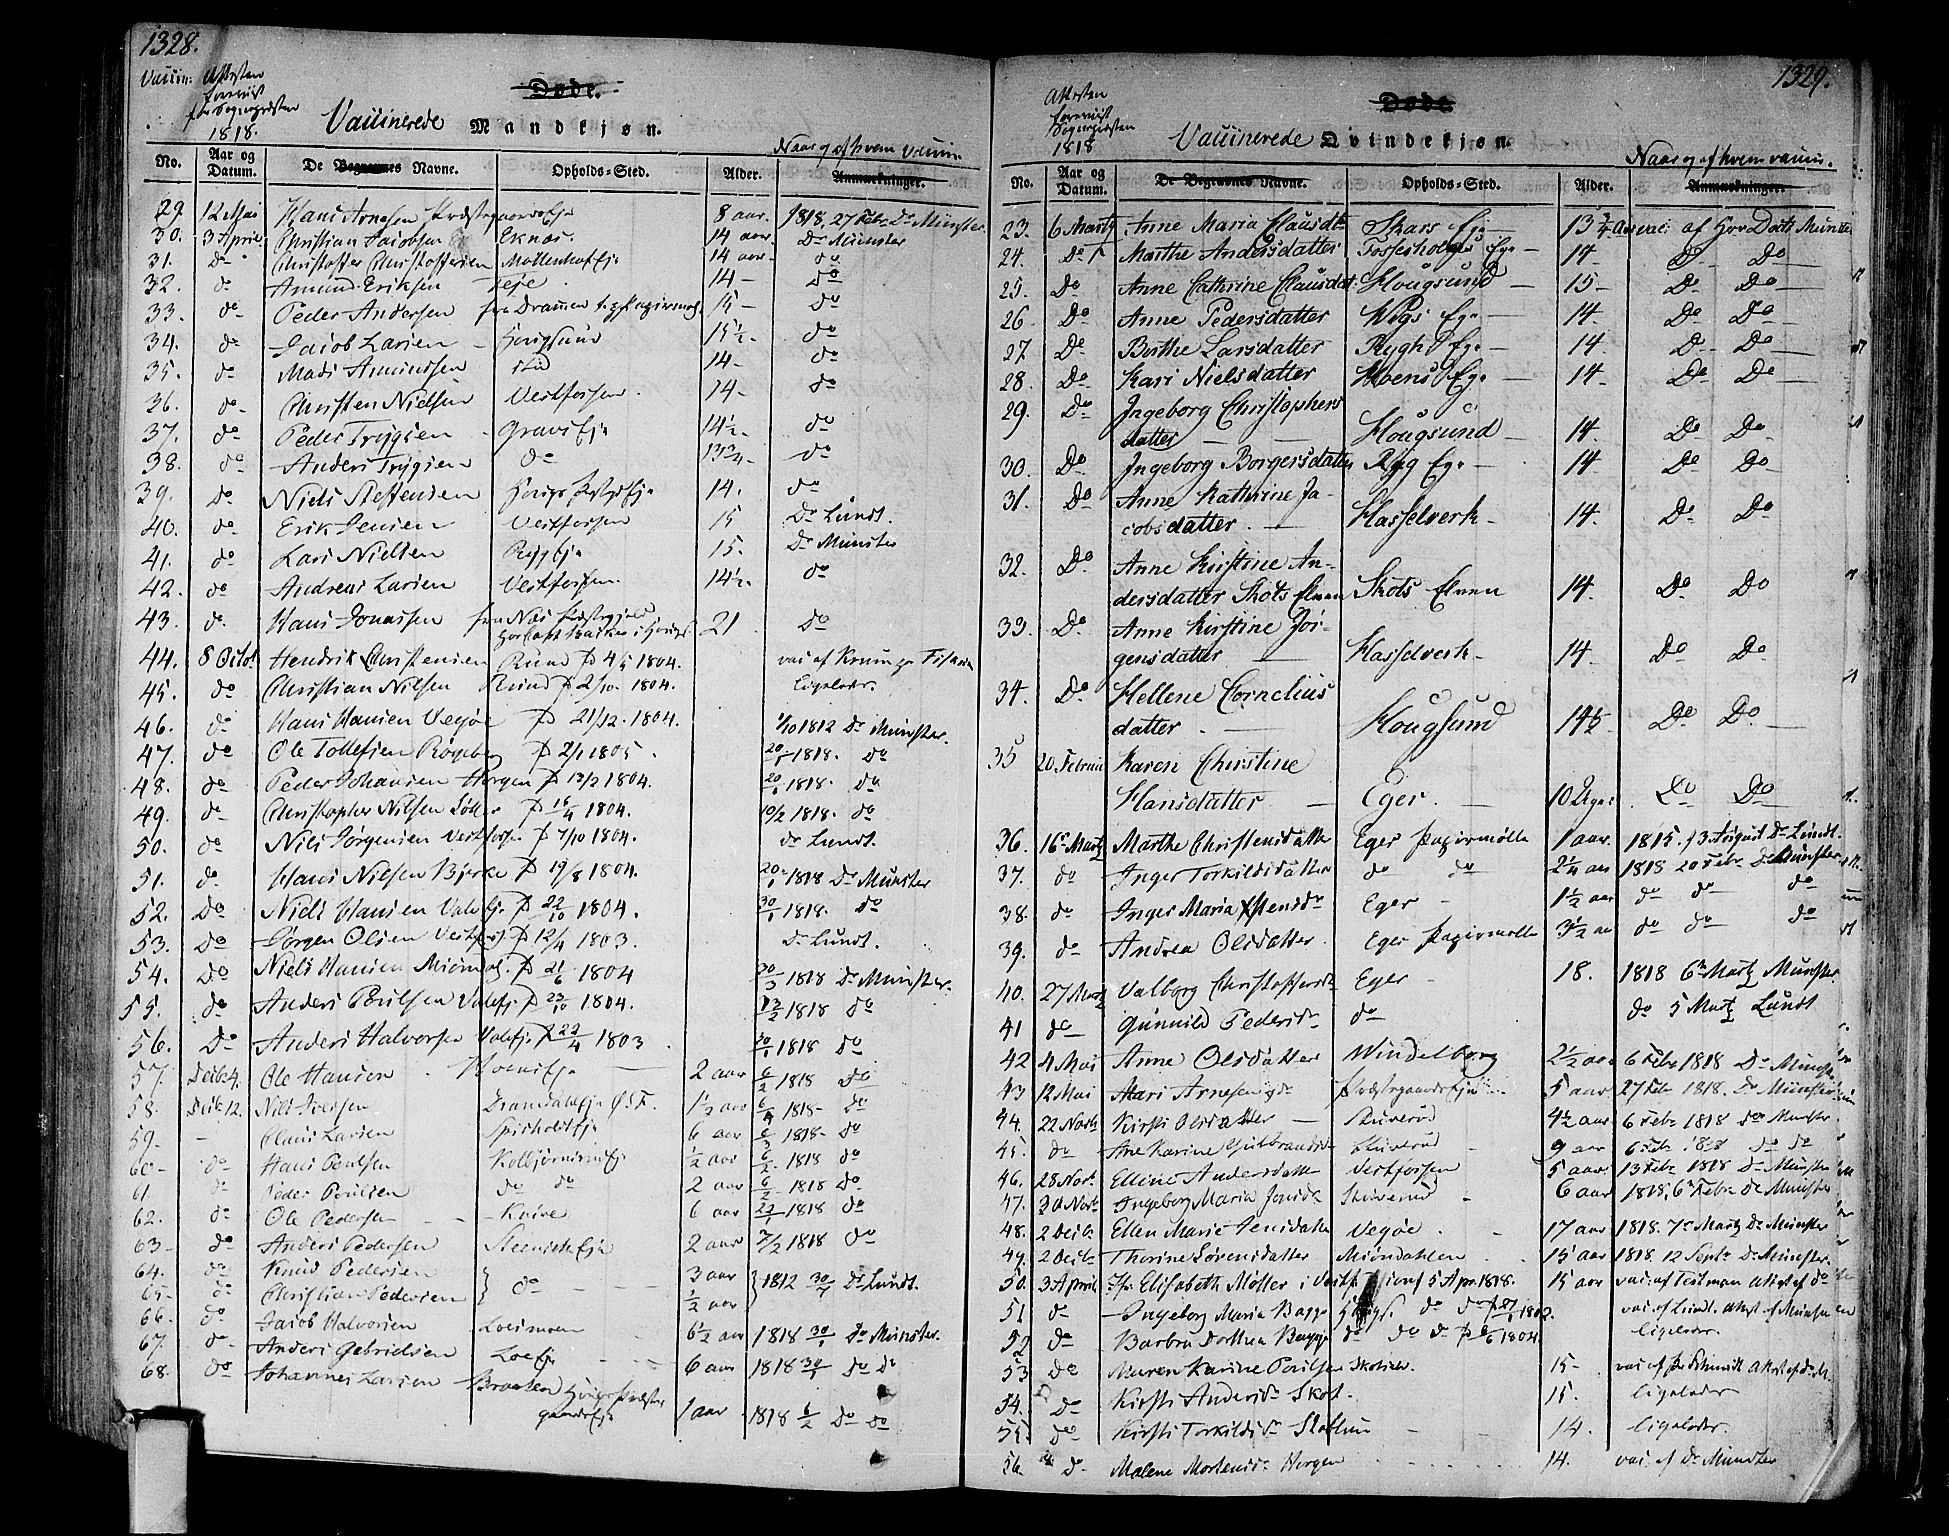 1328.
Vaccin: Attesten
foreviist
for Sognepræsten
1818.
Døde.
Vaccinerede Mandkjøn.
Naar og af hvem vaccin.
No. Aar og Datum. De Begravnes Navne. Opholds-Sted. Alder. Anmærkninger.
29. 12 Mai Hans Arnesen Præstegaardseje 8 aar. 1818. 27 Febr. Dr Münster.
30. 3 April Christian Jacobsen Eknæs. 14 aar. Dr Münster
31. do Christoffer Christoffersen Møllenhofeje 14 aar. do
32. do Amund Eriksen 14 — do
33. do Peder Andersen fra Drammen 15 — do
34. do Jacob Larsen Hougsund 15½. do
35. do Mads Amundsen 14 — do
36. do Christen Nielsen Vestfossen. 14 — do
37. do Peder Trygsen Gravseje 14½. do
38. do Anders Trygsen do 13¾ — do
39. do Niels Steffensen 14. do
40. do Erik Jensen Vestfossen 15 Dr Lundt.
41. do Lars Nielsen Rygeje 15. Dr Münster
42. do Andreas Larsen Vestfossen. 14½. do
43. do Hans Jonassen fra Næs Præstegjeld 21 do
44. 8 Octob Hendrik Christensen Rund P 4/5 1804. vac: af
45. do Christian Nilsen Rund P 2/10. 1804. ligeledes.
46. do Hans Hansen Vegøe P 21/12. 1804. 1/10 1812 Dr Münster.
47. do Ole Tollefsen Røgeberg P 2/1 1805. 20/1 1818. do
48. do Peder Johansen Horgen P 13/2 1804. 20/1 1818. do
49. do Christopher Nilsen P 16/4 1804. 10/2 1818. do
50. do Nils Jørgensen Vestfoss. P 7/10 1804. do Lundt.
51. do Hans Nilsen Bjerke P 19/8 1804. 20/1 1818 Dr Münster
52. Do Niels Hansen P 22/10 1804. 30/1 1818. do
53. Do Jørgen Olsen Vestfos. P 12/4 1803. Dr Lundt.
54. Do Niels Hansen P 21/6 1804 30/3 1818 Dr Münster.
55. do Anders Poulsen P 23/10 1804. 12/2 1818 do
56. Do Anders Halvorsen P 22/4 1803 30/1 1818 do
57. Decbr 4. Ole Hansen Hoenseje 2 aar 6/2 1818 do
58. Decbr 12. Nils Iversen 1½ aar 6/2 1818 do
59 - Claus Larsen 6 aar 6/3 1818 do
60 do Hans Poulsen Kolbjørnsrudeje ½ aar 6/2. 1818 do
61 do Peder Poulsen do do 2 aar 6/2 1818 do
62. do Ole Pedersen Knive 6 aar 23/1 1818 do
63 do Anders Pedersen 2 aar 7/2 1818 do
64. do Knud Pedersen do 3 aar 1812 30/7 Dr Lundt.
65 do Christian Pedersen ½ aar
66. do Jacob Halvorsen Loesmoen 6½ aar 1818 30/1 Dr Münster.
67. do Anders Gabrielsen Loeseje 6 aar 1818 30/1 do do
68. do Johannes Larsen Braaten 1 aar 1818 6/2 do do
1329.
Attesten
foreviist
Sognepræsten
1818
Døde.
Vaccinerede Qvindekjøn.
Naar og af hvem vaccin.
No. Aar og Datum. De Begravnes Navne. Opholds-Sted. Alder. Anmærkninger.
23. 6 Martz Anne Maria Clausdt Skars Eje 13¾ Aar vac: af Hrr Doct Münster
24. Do Marthe Andersdatter Fossesholms Eje — 14 — Do Do
25. Do Anne Cathrine Clausdat: Hougsund — 15 — Do Do
26 Do Anne Pedersdatter Eje — 14. Do Do
27. Do Berthe Larsdatter Rygh Eje — 14. Do Do
28. Do Kari Nielsdatter Hoens Eje — 14 — Do Do
29. Do Ingeborg Christophers
datter — Hougsund — 14. Do Do
30. Do Ingeborg Borgersdatter Ryg Eje — 14 Do Do
31. Do Anne Kathrine Ja-
cobsdatter. — Hasselverk — 14. Do Do
32. Do Anne Kirstine An-
dersdatter Skots Elven Skots Elven 14. Do Do
33. Do Anne Kirstine Jør-
gensdatter — Hasselverk — 14. Do Do
34. Do Hellene Cornelius
datter — Hougsund 14½ Do Do
35 20. Februar Karen Christine
Hansdatter — Eger. — 10 Uger. Do Do
36. 16 Martz Marthe Christensdatter Eger Papirmølle 1 aar. 1815. 13 August Dr Lundt.
37. do Inger Torkildsdatter do do 2¼ aar 1818 20 Febr. Dr Münster
38. do Inger Maria Eger 1½ aar do do do
39. do Andrea Olsdatter Eger Papirmølle 3½ aar do do do
40. 27 Martz Valborg Christoffersdr Eger 18. 1818 6 Martz Münster.
41 do Gunnild Pedersdr do do 5 Martz Lundt
42 4 Mai Anne Olsdatter Windelborg 2½ aar 6 Febr 1818 Dr Münster
43 12 Mai Mari Arnesensdr Præstegaardseje 5 aar 27 Febr 1818. Dr Münster
44. 22 Novbr Kirsti Olsdatter 4½ aar 6 Febr 1818 do Münster
45. do Ane Karine Gulbrandsdr 9 aar 6 Febr 1818 do do
46. 28 Nov. Elline Andersdatter Vestfossen 5 aar 13 Febr 1818 Dr Münster
47. 30 Nov. Ingeborg Maria Jensdr 6 aar 1818. 6 Febr. Dr Münster
48. 2 Decbr Ellen Marie Jensdatter Vegøe 17 aar 1818. 7 Martz Dr Münster
49. 2 Decbr Thorine Sørensdatter Miøndahlen 15 aar 1818. 12 Septr Dr Münster.
50. 3 April Jfr. Elisabeth Møller i 5 Apr. 1818. 15 aar vac. af
51 do Ingeborg Maria Bagge 1802. vac. af Lundt. attest af Münster
52 do Barbra Dorthea Bagge do do do 1804. ligeledes.
53 do Maren Karine Poulsen 15 - vac. af
54. do Kirsti Andersdr Skot. 15. ligeledes
55. do Kirsti Torkildsdr 14. ligeledes
56. do Malene Mortensdr Horgen 14. vac. af Dr Münster